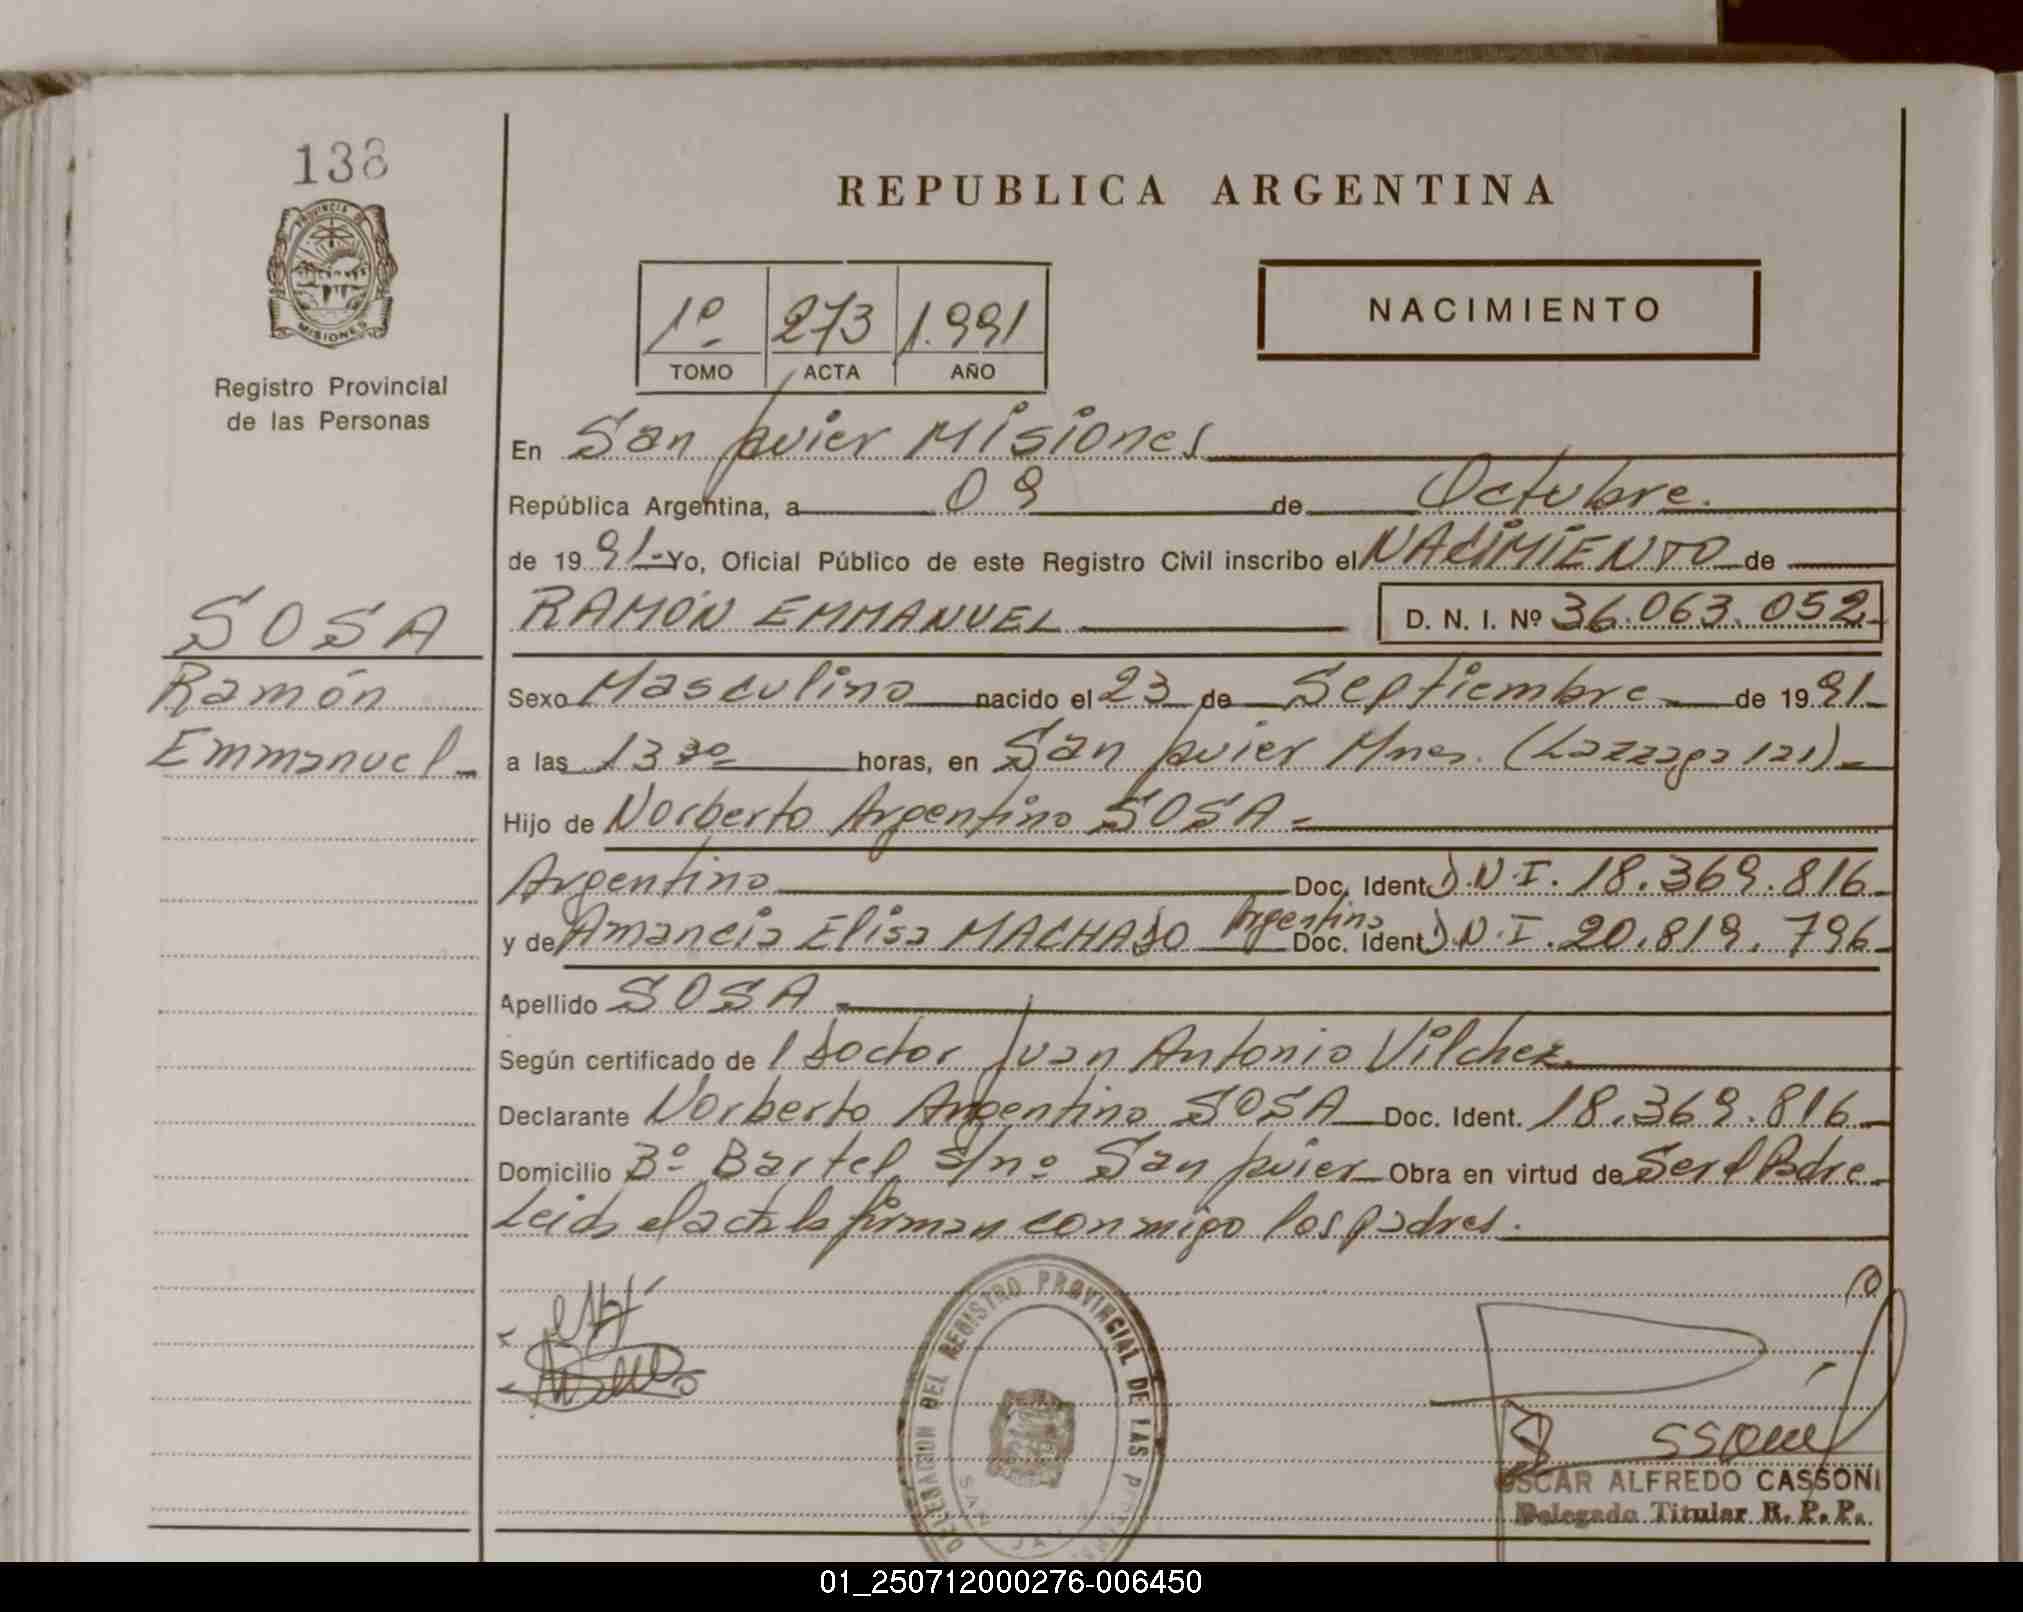 138
PROVINCIA DE
MISIONES
Registro Provincial
de las Personas
SOSA
Ramón
Emmanuel
REPUBLICA ARGENTINA
1º 273 1.991
TOMO ACTA AÑO
NACIMIENTO
En San Javier Misiones
República Argentina, a 09 de Octubre.
de 1991- Yo, Oficial Público de este Registro Civil inscribo el NACIMIENTO de
RAMÓN EMMANUEL D. N. I. Nº 36.063.052
Sexo Masculino nacido el 23 de Septiembre de 1991-
a las 13 30 horas, en San Javier Mnes. (Lazzaga 121)-
Hijo de Norberto Argentino SOSA-
Argentino Doc. Ident D.N.I. 18.369.816-
y de Amancia Elisa MACHADO Argentina Doc. Ident D.N.I. 20.819.796-
Apellido SOSA-
Según certificado de l Doctor Juan Antonio Vilchez
Declarante Norberto Argentino SOSA Doc. Ident. 18.369.816-
Domicilio Bº Bartel s/nº San Javier Obra en virtud de Ser el Padre-
Leida el acta la firman conmigo los padres.
DELEGACION DEL REGISTRO PROVINCIAL DE LAS
SAN JA
OSCAR ALFREDO CASSONI
Delegado Titular R. P. P.
01_250712000276-006450